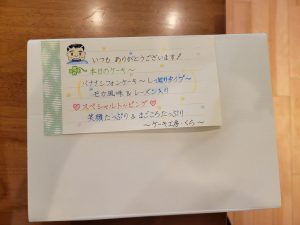 いつも ありがとうございます!
本日のケーキ〜
バナナシフォンケーキ〜しっとりタイプ〜
モカ風味 & レーズン入り
♡スペシャルトッピング♡
笑顔たっぷり & まごころたっぷり
〜ケーキ工房・くら〜